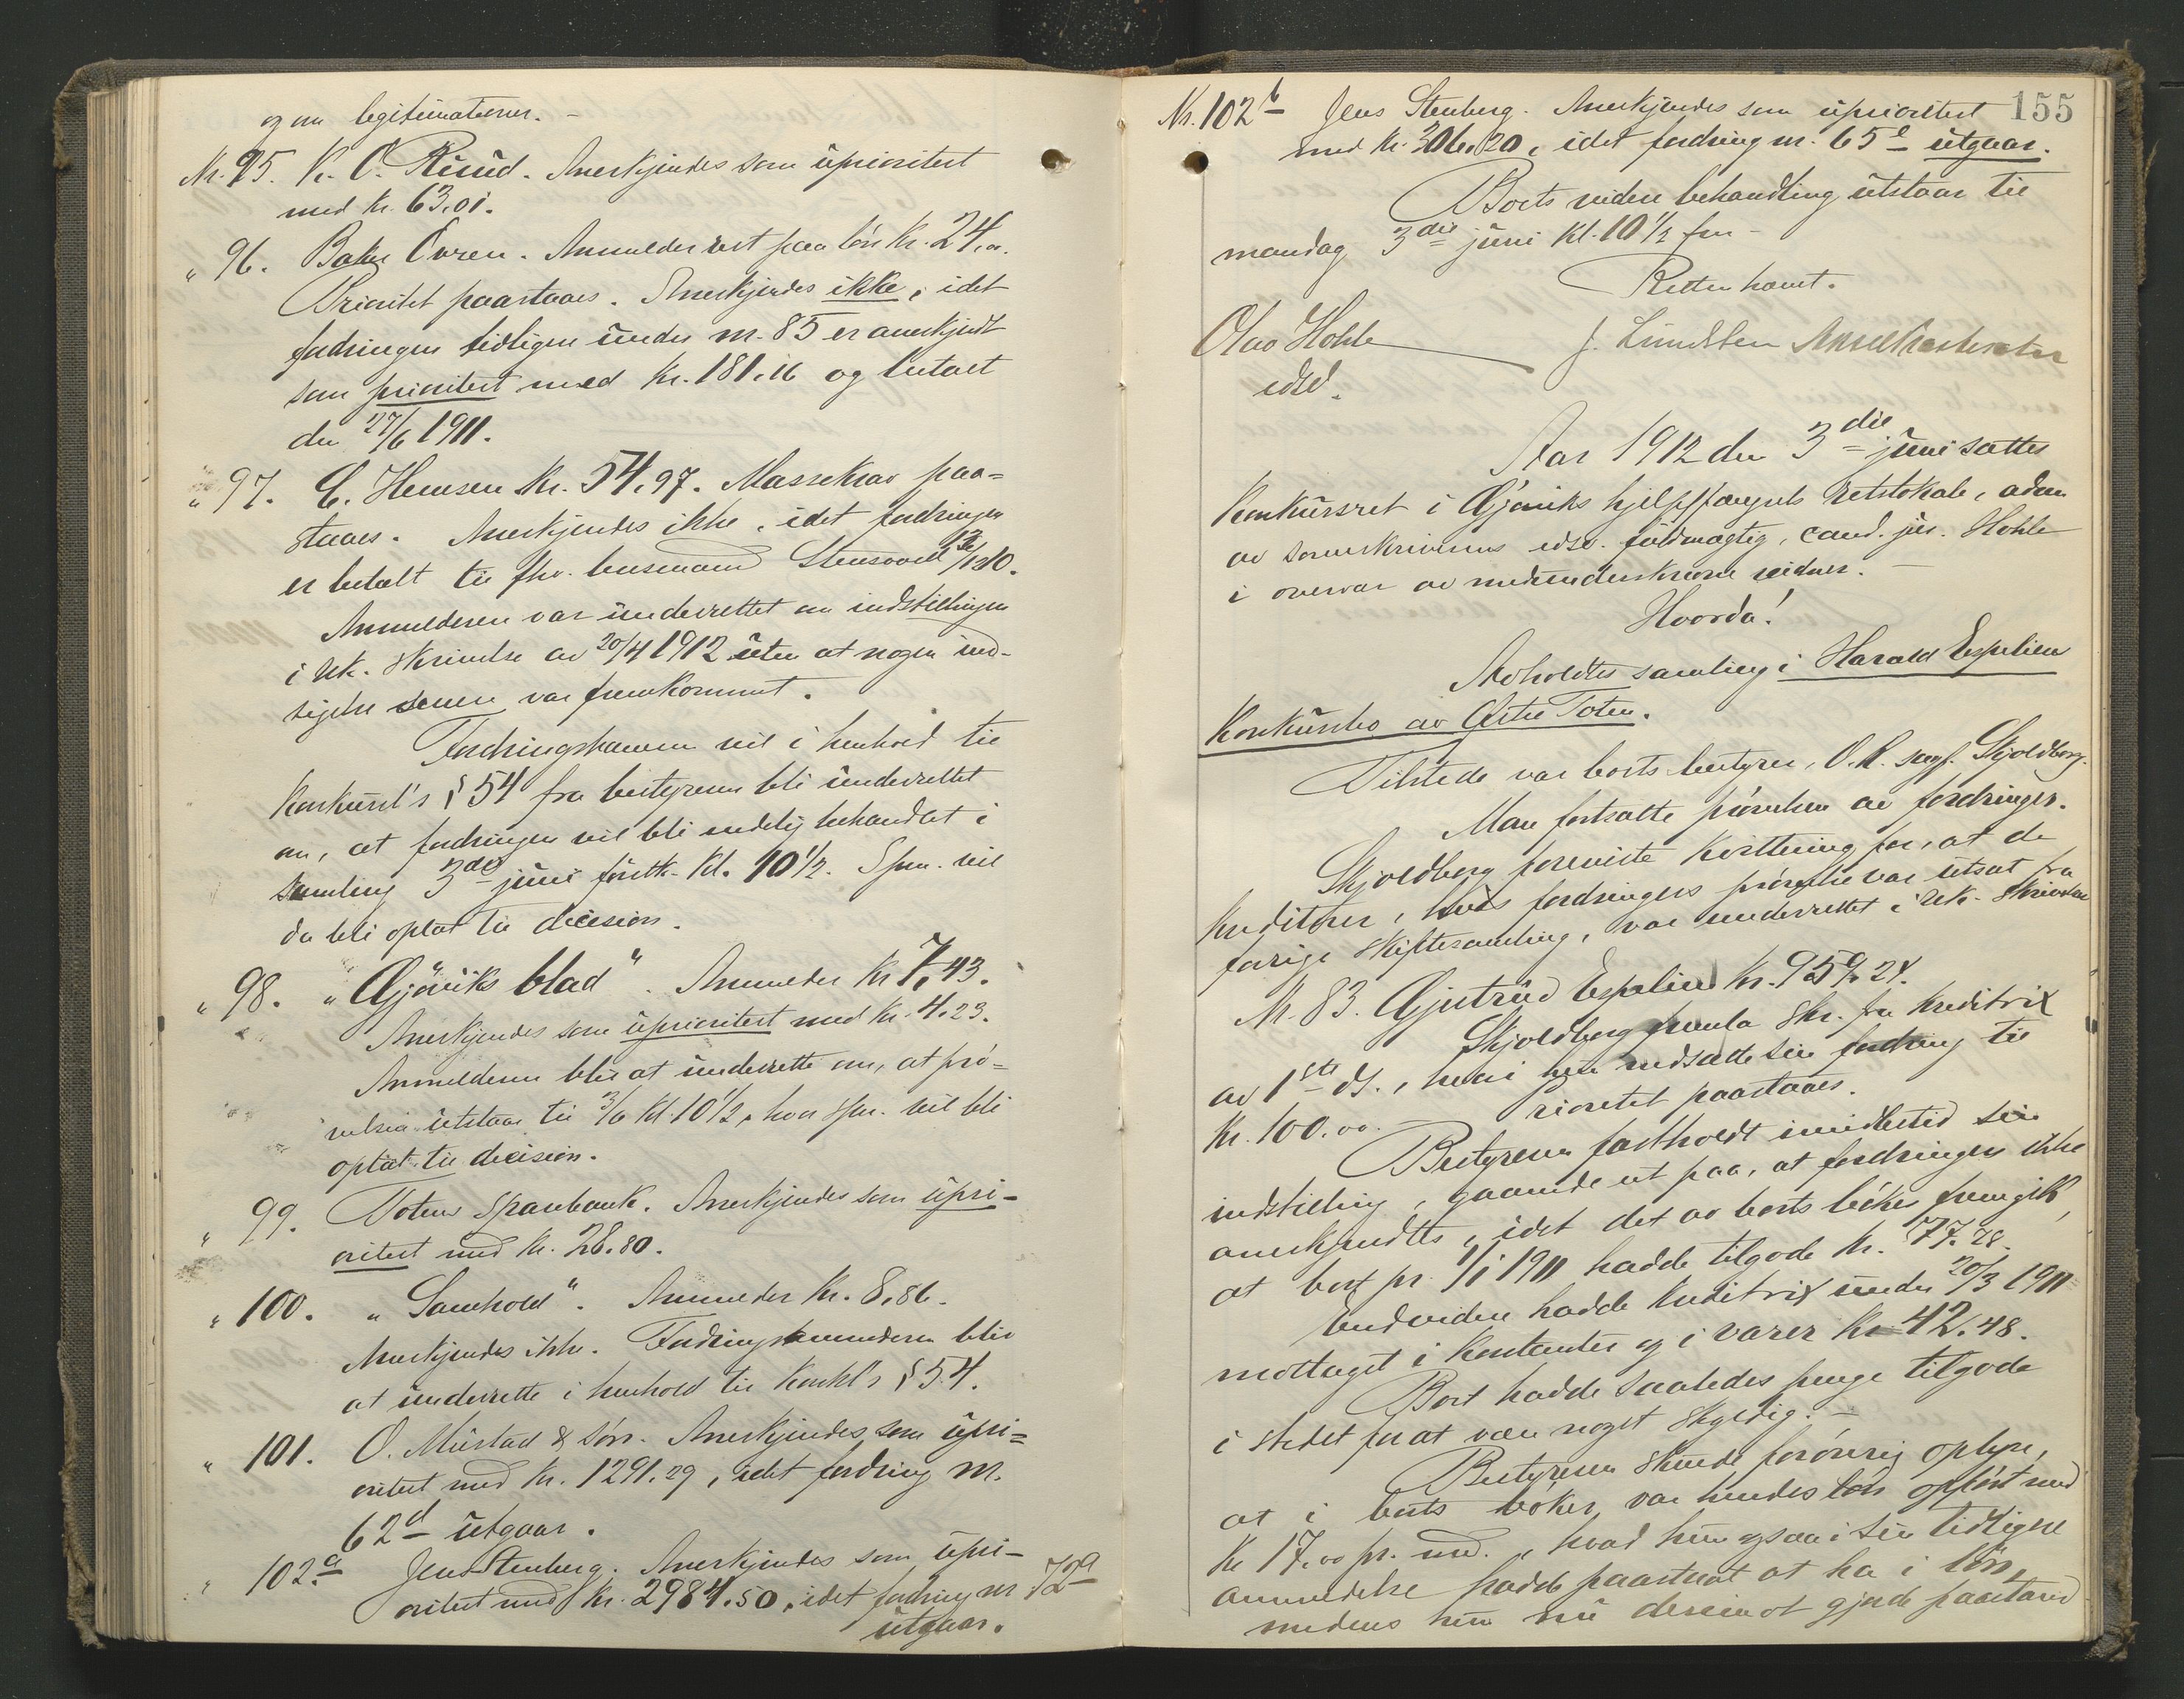 og om legitimationen. -
Nr. 95. K. O. Ruud. Anerkjendes som uprioritert
med kr. 63.01.
" 96. Baker Evren. Anmelder rest paa løn kr. 24.00.
Prioritet paastaaes. Anerkjendes ikke, idet
fordringen tidligere under nr. 85 er anerkjendt
som prioritert med kr. 181.16 og betalt
den 27/6 1911.
" 97. C. Hemsen kr. 54.97. Massekrav paa=
staaes. Anerkjendes ikke, idet fordringen
er betalt til fhv. lensmand Stensvold 1910.
Anmelderen var underrettet om indstillingen
i rek. skrivelse av 20/4 1912 uten at nogen ind-
sigelse senere var fremkommet.
Fordringshaveren vil i henhold til
konkursl's § 54 fra bestyreren bli underrettet
om, at fordringen vil bli endelig behandlet i
samling 3die juni førstk. kl. 10 1/2. Spm. vil
da bli optat til decision.
" 98. "Gjøviks blad". Anmelder kr 7.43.
Anerkjendes som uprioritert med kr. 4.23.
Anmelderen blir at underrette om, at prø=
velsen utstaar til 3/6 kl 10 1/2, hvor spm. vil bli
optat til decision.
" 99. Totens Sparebank. Anerkjendes som upri-
oritert med kr. 28.80.
" 100. "Samhold". Anmelder kr. 8.86.
Anerkjendes ikke. Fordringsanmelderen blir
at underrette i henhold til konkl's § 54.
" 101. O. Mustad & søn. Anerkjendes som upri=
oritert med kr. 1291.29, idet fordring nr.
62d utgaar.
" 102a Jens Stenberg. Anerkjendes som upri-
oritert med kr. 2984.50, idet fordring nr 72a
utgaar.
155
Nr. 102b Jens Stenberg. Anerkjendes som uprioritert
med kr. 306.20, idet fordring nr. 65e utgaar.
Boets videre behandling utstaar til
mandag 3die juni kl. 10 1/2 fm -
Retten hævet.
Olav Hohle J. Lundsten
edsv.
Aar 1912 den 3die juni sattes
konkursret i Gjøviks hjelpefængsels retslokale, adm.
av sorenskriverens edsv. fuldmægtig, cand. jur. Hohle
i overvær av medunderskrevne vidner. -
Hvorda!
Avholdtes samling i Harald Espelien
konkursbo av Østre Toten.
Tilstede var boets bestyrer, O.R. sagf. Skjoldborg.
Man fortsatte prøvelsen av fordringer.
Skjoldborg foreviste kvittering for, at de
kreditorer, hvis fordringers prøvelse var utsat fra
forrige skiftesamling, var underrettet i rek. skrivelse
Nr. 83. Gjertrud Espelien kr. 959.24.
Skjoldborg fremla skr. fra kreditrix
av 1ste ds., hvori hun nedsatte sin fordring til
kr. 100.00. Prioritet paastaaes.
Bestyreren fastholdt imidlertid sin
indstilling, gaaende ut paa, at fordringen ikke
anerkjendtes, idet det av boets bøker fremgik,
at boet pr. 1/1 1911 hadde tilgode kr. 77.28.
Endvidere hadde kreditrix under 20/3 1911
mottaget i kontanter og i varer kr 42.48.
Boet hadde saaledes penge tilgode
i stedet for at være noget skyldig. -
Bestyreren skulde forøvrig oplyse,
at i boets bøker var hendes løn opført med
kr 17.00 pr. md., hvad hun ogsaa i sin tidligere
anmeldelse hadde paastaat at ha i løn,
medens hun nu derimot gjorde paastand